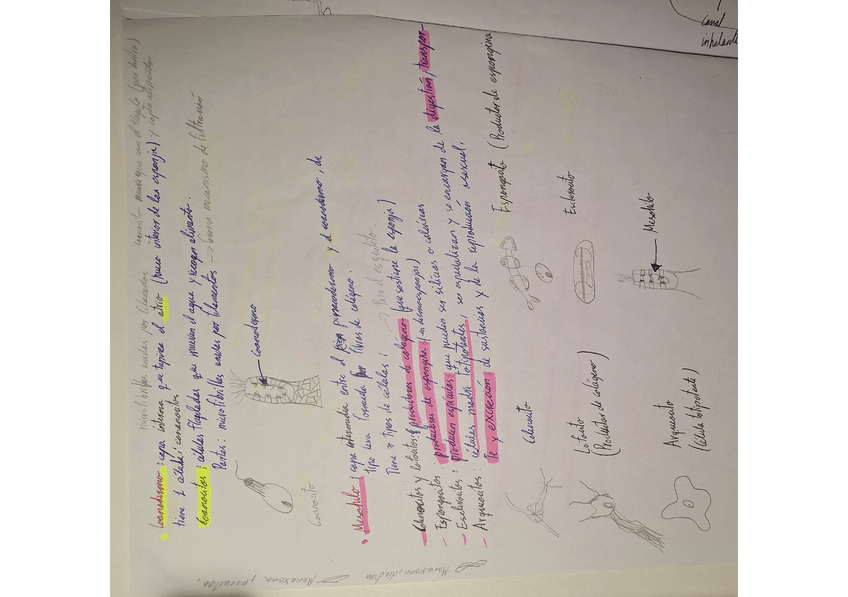 microfibrillas unidas por filamentos
• Coanodermo: capa interna que tapiza el atrio (hueco interior de la esponja) y
tiene 1 célula: coanocitos
Coanocitos: células flageladas que mueven el agua y recogen alimento.
Partes: microfibrillas unidas por filamentos → buena mecanismo de filtración
Coanodermo
Coanocito
• Mesohilo: capa intermedia entre el pinacodermo y el coanodermo, de
tipo laxa formada por fibras de colágeno.
Tiene 4 tipos de células:
- Colenocitos y Lofocitos: productores de colágeno (que sostiene la esponja)
- Espongocitos: productores de espongina (en demosponjas)
- Esclerocitos: producen espículas que pueden ser silíceas o calcáreas
- Arqueocitos: células madre totipotentes, se especializan y se encargan de la digestión, transpor-
te y excreción de sustancias y de la reproducción asexual.
Colenocito
Espongocito (Productor de espongina
Lofocito
(Productor de colágeno)
Esclerocito
Arqueocito
(célula totipotente)
Mesohilo
canal
inhalante